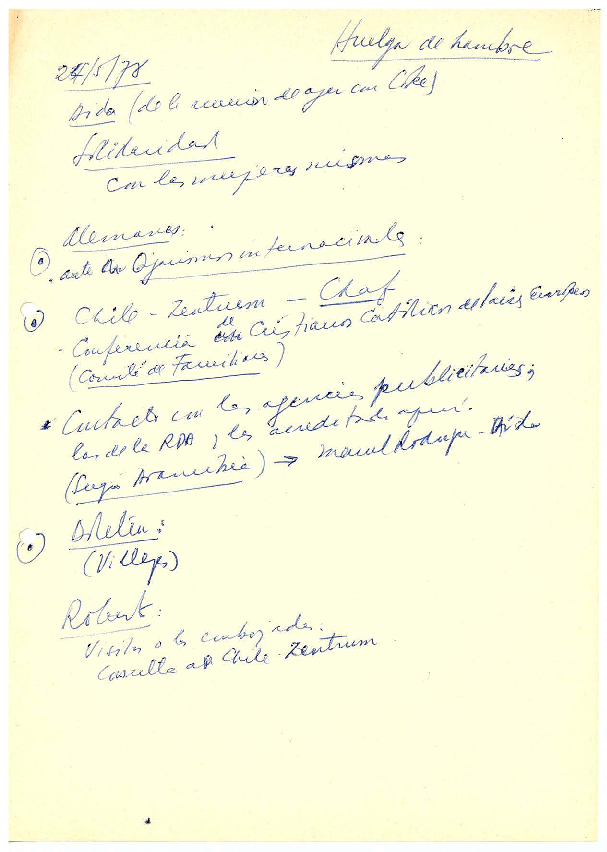 Huelga de hambre
24/5/78
Aida (de la reunión de ayer con
Solidaridad
con las mujeres mismas
Alemanes:
ante Organismos internacionales:
Chile - Zentrum -- Chaf
- Conferencia de Cristianos Católicos de países europeos
(Comité de Familiares)
Contacto con las agencias publicitarias;
las de la RDA y las acreditadas aquí.
(Sergio ) → Manuel - Aida
Boletín:
(Villegas)
Robert:
Visitas a las embajadas.
Consulta a Chile-Zentrum